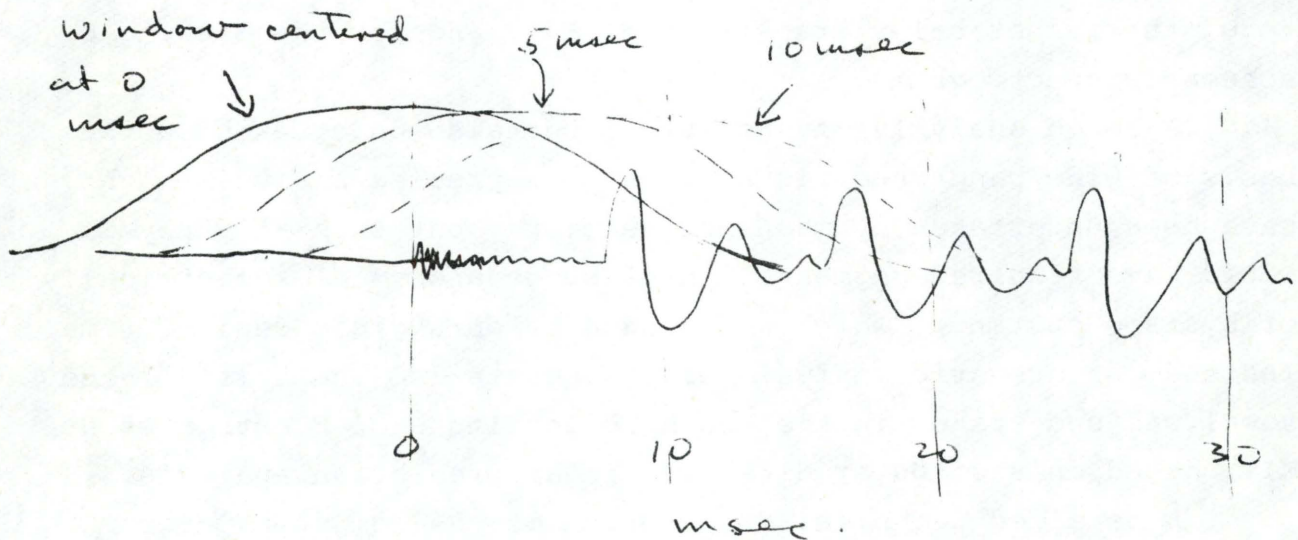 window centered
at 0
msec
5 msec
10 msec
0
10
20
30
msec.